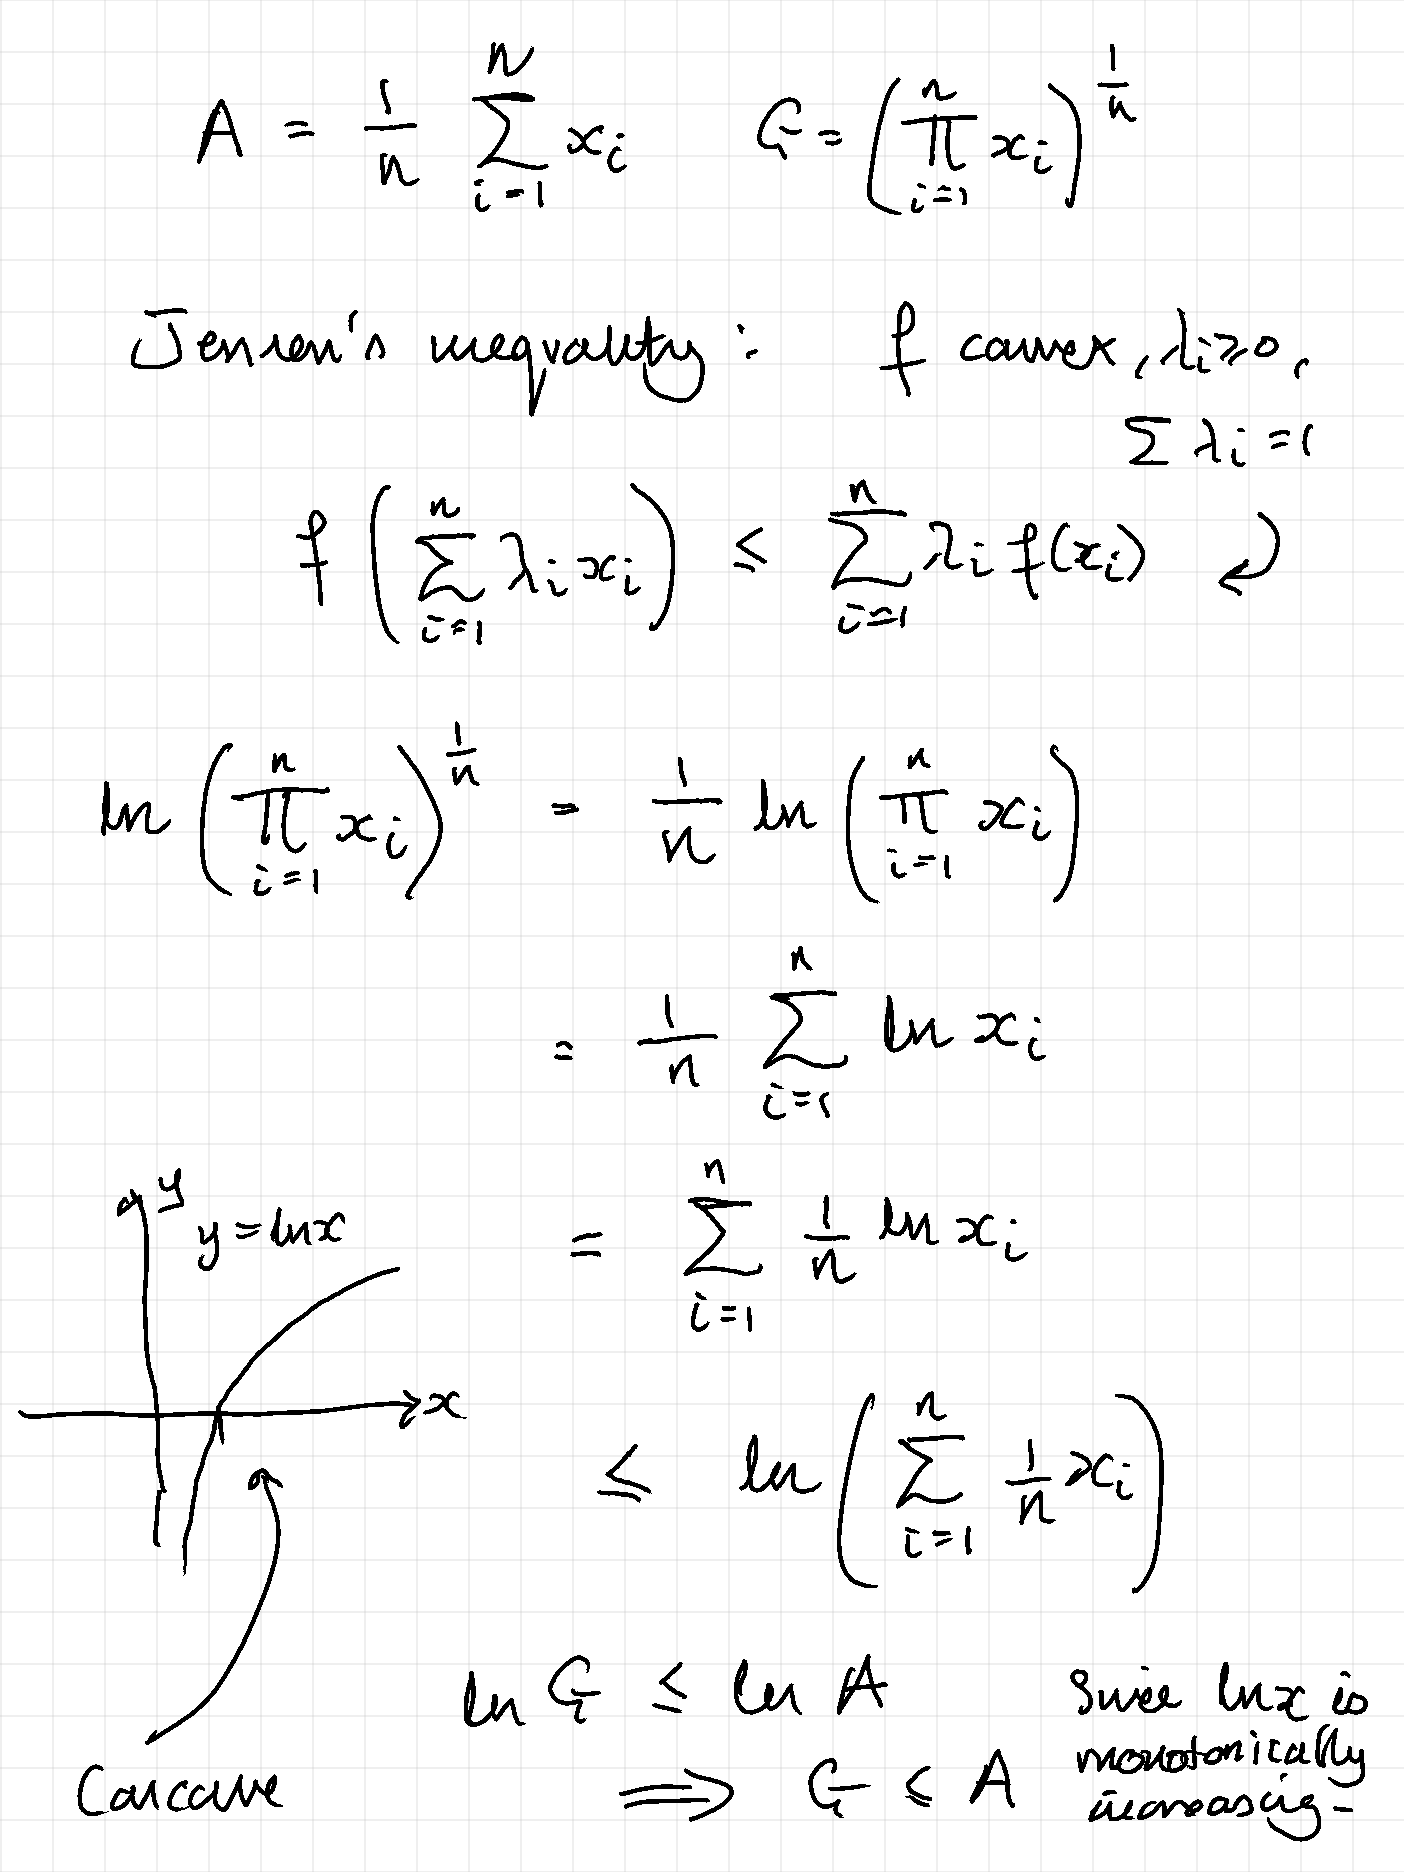 A = 1/n ∑_{i=1}^{n} x_i    G = (∏_{i=1}^{n} x_i)^{1/n}
Jensen's inequality: f convex, λ_i ≥ 0,
∑ λ_i = 1
f(∑_{i=1}^{n} λ_i x_i) ≤ ∑_{i=1}^{n} λ_i f(x_i)
ln(∏_{i=1}^{n} x_i)^{1/n} = 1/n ln(∏_{i=1}^{n} x_i)
= 1/n ∑_{i=1}^{n} ln x_i
= ∑_{i=1}^{n} 1/n ln x_i
y
y = ln x
x
≤ ln(∑_{i=1}^{n} 1/n x_i)
Concave
ln G ≤ ln A
⟹ G ≤ A
Since ln x is
monotonically
increasing-